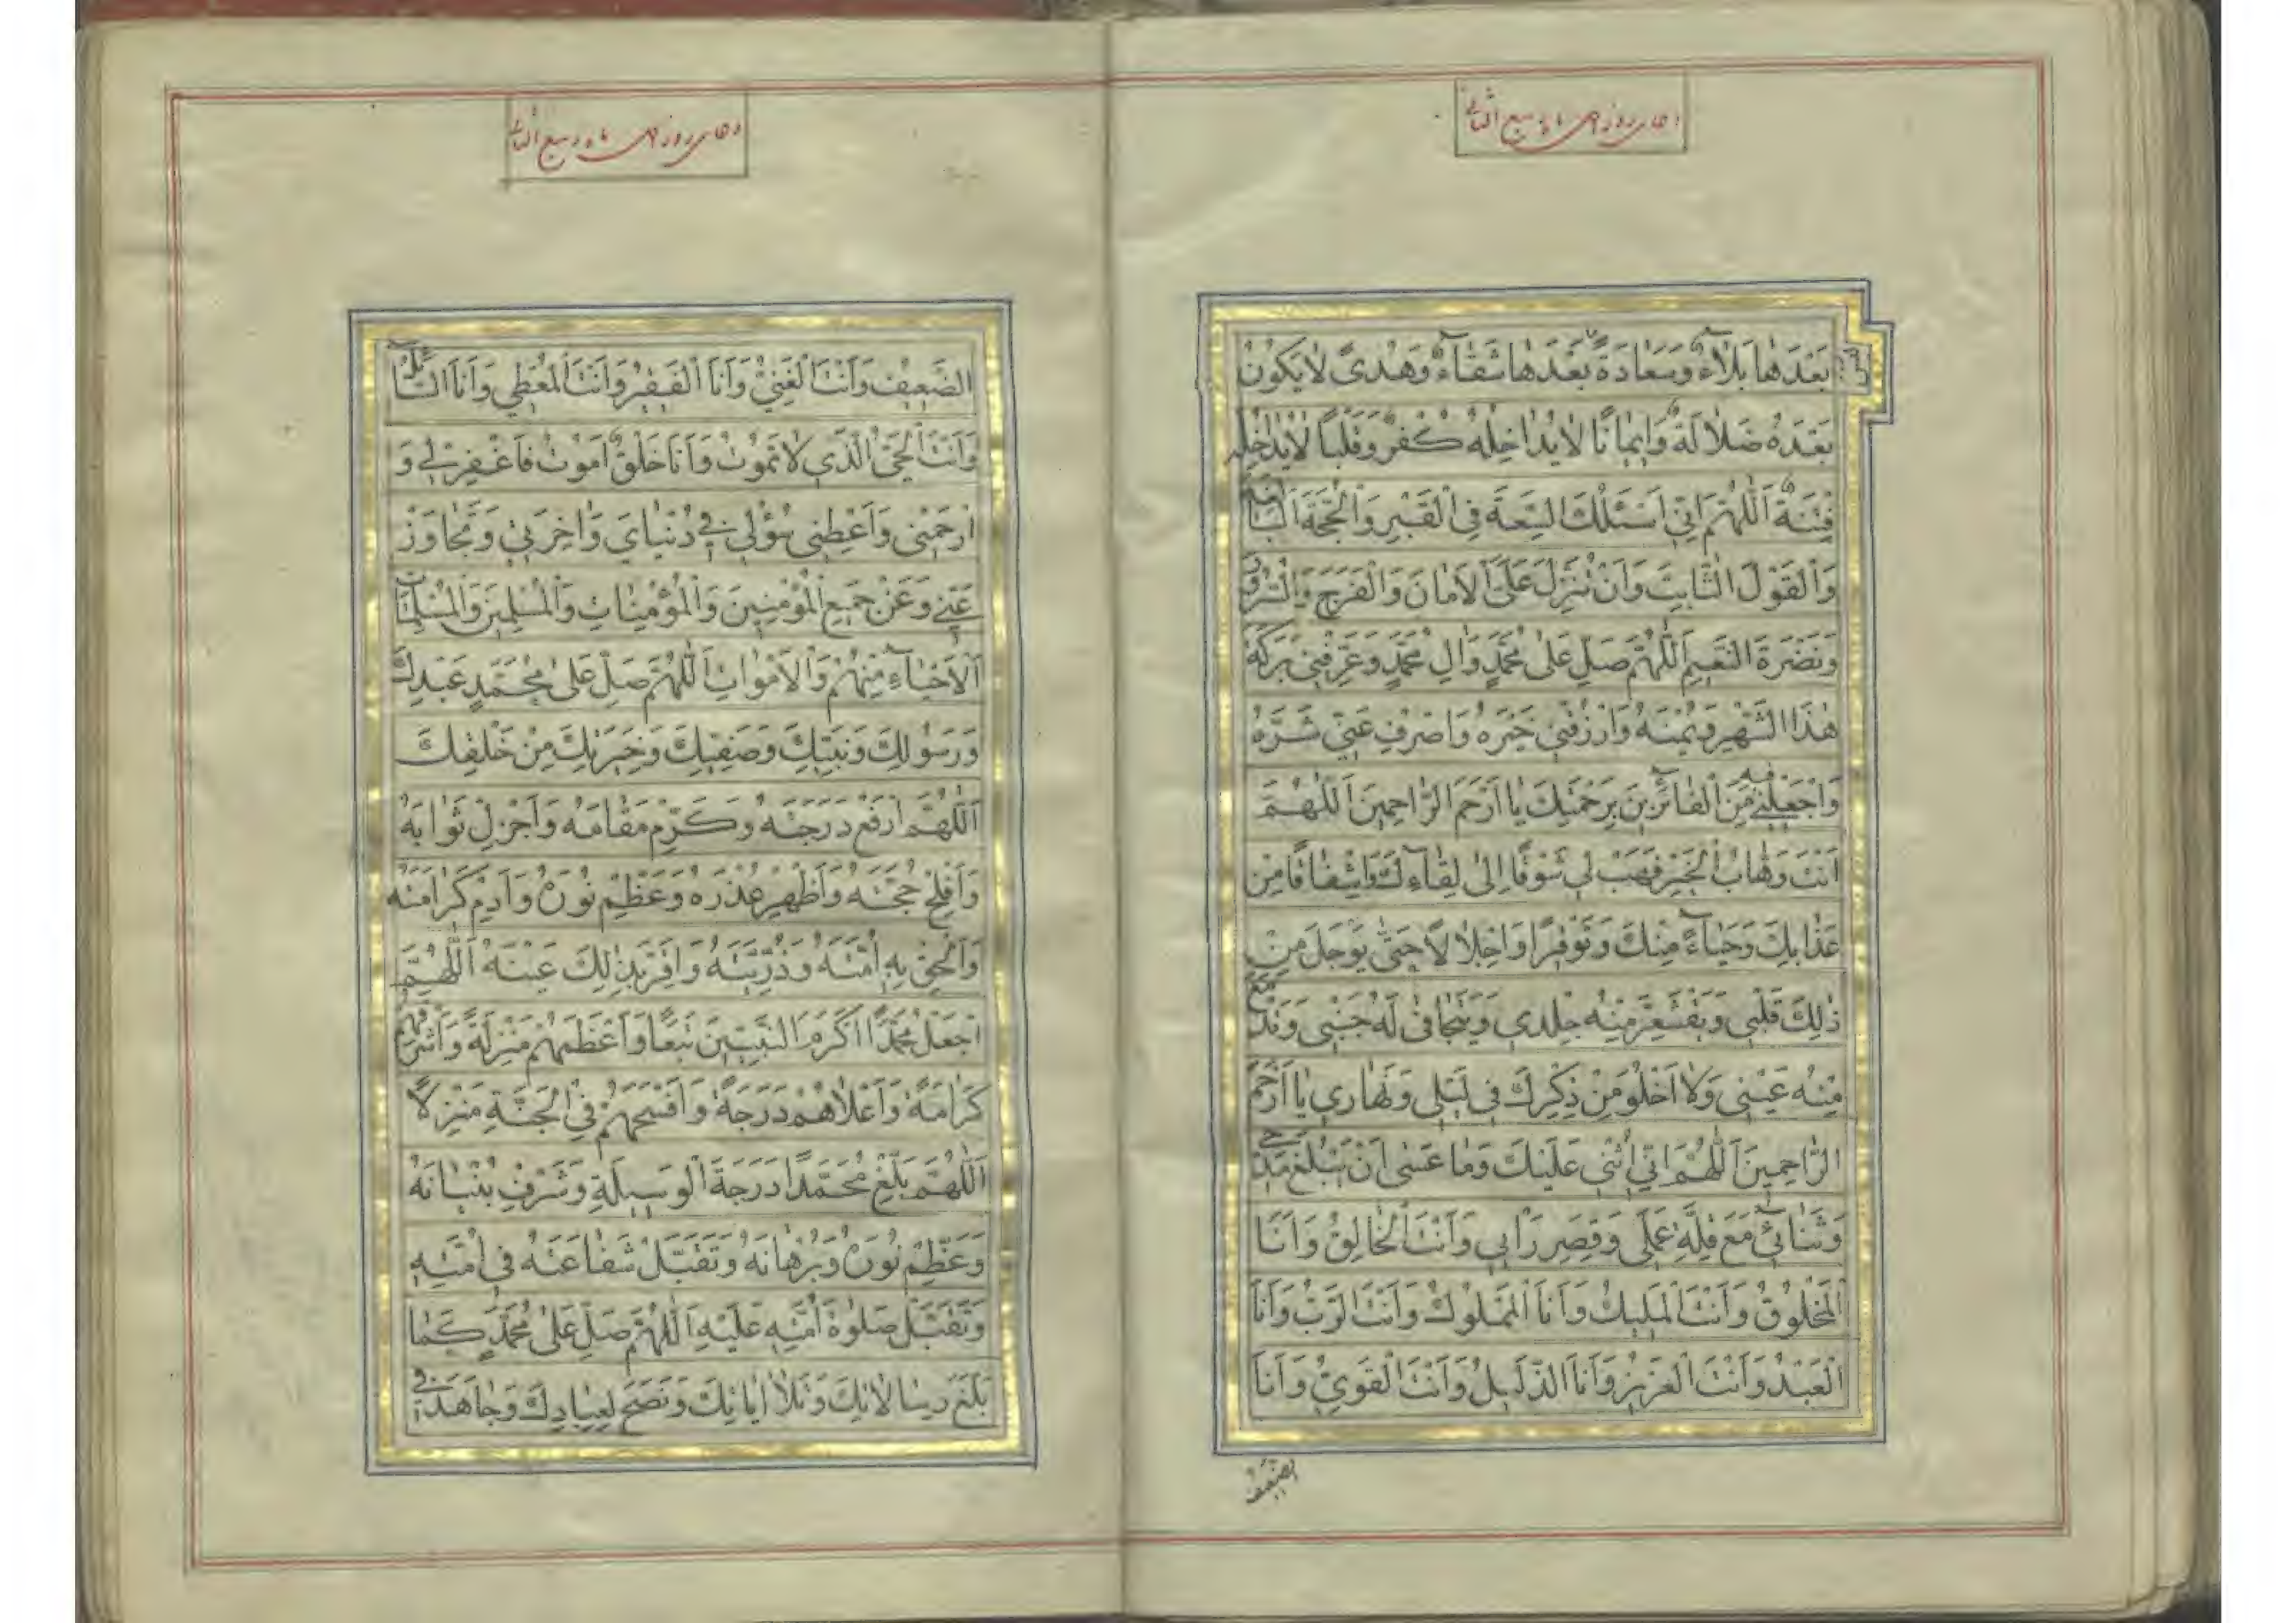 دعای روز ماه ربیع الثانی
بَعْدَهٰا بَلٰٓاءٌ وَسَعٰادَةً بَعْدَهٰا شَقٰٓاءٌ وَهُدىً لٰا يَكُونُ
بَعْدَهُ ضَلٰالَةٌ وَاِيمٰانًا لٰا يُدٰاخِلُهُ كُفْرٌ وَقَلْبًا لٰا يُدٰاخِلُهُ
فِتْنَةٌ اَللّٰهُمَّ اِنّى اَسْئَلُكَ السَّعَةَ فِى الْقَبْرِ وَالْحُجَّةَ الْبٰالِغَةَ
وَالْقَوْلَ الثّٰابِتَ وَاَنْ تُنْزِلَ عَلَىَّ الْاَمٰانَ وَالْفَرَجَ وَالسُّرُورَ
وَنَضْرَةَ النَّعيمِ اَللّٰهُمَّ صَلِّ عَلىٰ مُحَمَّدٍ وَاٰلِ مُحَمَّدٍ وَعَرِّفْنى بَرَكَةَ
هٰذَا الشَّهْرِ وَيُمْنَهُ وَارْزُقْنى خَيْرَهُ وَاصْرِفْ عَنّى شَرَّهُ
وَاجْعَلْنى فيهِ مِنَ الْفٰآئِزينَ بِرَحْمَتِكَ يٰا اَرْحَمَ الرّٰاحِمينَ اَللّٰهُمَّ
اَنْتَ وَهّٰابُ الْخَيْرِ فَهَبْ لى شَوْقًا اِلىٰ لِقٰآءِكَ وَاِشْفٰاقًا مِنْ
عَذٰابِكَ وَحَيٰآءً مِنْكَ وَتَوْقيرًا وَاِجْلٰالًا حَتّٰى يَوْجَلَ مِنْ
ذٰلِكَ قَلْبى وَيَقْشَعِرَّ مِنْهُ جِلْدى وَيَتَجٰافىٰ لَهُ جَنْبى وَتَدْمَعَ
مِنْهُ عَيْنى وَلٰا اَخْلُوَ مِنْ ذِكْرِكَ فى لَيْلى وَنَهٰارى يٰا اَرْحَمَ
الرّٰاحِمينَ اَللّٰهُمَّ اِنّى اُثْنى عَلَيْكَ وَمٰا عَسىٰ اَنْ يَبْلُغَ مَدْحى
وَثَنٰآئى مَعَ قِلَّةِ عَمَلى وَقِصَرِ رَاْيى وَاَنْتَ الْخٰالِقُ وَاَنَا
الْمَخْلُوقُ وَاَنْتَ الْمَليكُ وَاَنَا الْمَمْلُوكُ وَاَنْتَ الرَّبُّ وَاَنَا
الْعَبْدُ وَاَنْتَ الْعَزيزُ وَاَنَا الذَّليلُ وَاَنْتَ الْقَوِىُّ وَاَنَا
الضعيف
دعای روز ماه ربیع الثانی
الضَّعيفُ وَاَنْتَ الْغَنِىُّ وَاَنَا الْفَقيرُ وَاَنْتَ الْمُعْطى وَاَنَا السّٰآئِلُ
وَاَنْتَ الْحَىُّ الَّذى لٰا تَمُوتُ وَاَنَا خَلْقٌ اَمُوتُ فَاغْفِرْ لى وَ
ارْحَمْنى وَاَعْطِنى سُؤْلى فى دُنْيٰاىَ وَاٰخِرَتى وَتَجٰاوَزْ
عَنّى وَعَنْ جَميعِ الْمُؤْمِنينَ وَالْمُؤْمِنٰاتِ وَالْمُسْلِمينَ وَالْمُسْلِمٰاتِ
اَلْاَحْيٰآءِ مِنْهُمْ وَالْاَمْوٰاتِ اَللّٰهُمَّ صَلِّ عَلىٰ مُحَمَّدٍ عَبْدِكَ
وَرَسُولِكَ وَنَبِيِّكَ وَصَفِيِّكَ وَخِيَرَتِكَ مِنْ خَلْقِكَ
اَللّٰهُمَّ ارْفَعْ دَرَجَتَهُ وَكَرِّمْ مَقٰامَهُ وَاَجْزِلْ ثَوٰابَهُ
وَاَفْلِجْ حُجَّتَهُ وَاَظْهِرْ عُذْرَهُ وَعَظِّمْ نُورَهُ وَاَدِمْ كَرٰامَتَهُ
وَاَلْحِقْ بِهِ اُمَّتَهُ وَذُرِّيَّتَهُ وَاَقِرَّ بِذٰلِكَ عَيْنَهُ اَللّٰهُمَّ
اجْعَلْ مُحَمَّدًا اَكْرَمَ النَّبِيّينَ تَبَعًا وَاَعْظَمَهُمْ مَنْزِلَةً وَاَشْرَفَهُمْ
كَرٰامَةً وَاَعْلٰاهُمْ دَرَجَةً وَاَفْسَحَهُمْ فِى الْجَنَّةِ مَنْزِلًا
اَللّٰهُمَّ بَلِّغْ مُحَمَّدًا دَرَجَةَ الْوَسيلَةِ وَشَرِّفْ بُنْيٰانَهُ
وَعَظِّمْ نُورَهُ وَبُرْهٰانَهُ وَتَقَبَّلْ شَفٰاعَتَهُ فى اُمَّتِهِ
وَتَقَبَّلْ صَلٰوةَ اُمَّتِهِ عَلَيْهِ اَللّٰهُمَّ صَلِّ عَلىٰ مُحَمَّدٍ كَمٰا
بَلَّغَ رِسٰالٰاتِكَ وَتَلٰا اٰيٰاتِكَ وَنَصَحَ لِعِبٰادِكَ وَجٰاهَدَ فى